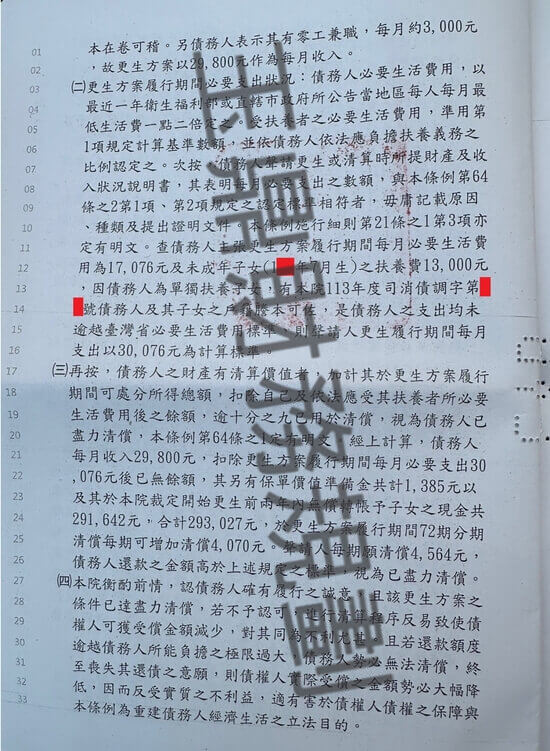 01 本在卷可稽。另債務人表示其有零工兼職,每月約3,000元
02 ,故更生方案以29,800元作為每月收入。
03 ㈡更生方案履行期間必要支出狀況:債務人必要生活費用,以
04 最近一年衛生福利部或直轄市政府所公告當地區每人每月最
05 低生活費一點二倍定之。受扶養者之必要生活費用,準用第
06 1項規定計算基準數額,並依債務人依法應負擔扶養義務之
07 比例認定之。次按,債務人聲請更生或清算時所提財產及收
08 入狀況說明書,其表明每月必要支出之數額,與本條例第64
09 條之2第1項、第2項規定之認定標準相符者,毋庸記載原因
10 、種類及提出證明文件,本條例施行細則第21條之1第3項亦
11 定有明文。查債務人主張更生方案履行期間每月必要生活費
12 用為17,076元及未成年子女(1年7月生)之扶養費13,000元
13 ,因債務人為單獨扶養子女,有本院113年度司消債調字第
14 號債務人及其子女之戶籍謄本可佐,是債務人之支出均未
15 逾越臺灣省必要生活費用標準,則聲請人更生履行期間每月
16 支出以30,076元為計算標準。
17 ㈢再按,債務人之財產有清算價值者,加計其於更生方案履行
18 期間可處分所得總額,扣除自己及依法應受其扶養者所必要
19 生活費用後之餘額,逾十分之九已用於清償,視為債務人已
20 盡力清償,本條例第64條之1定有明文。經上計算,債務人
21 每月收入29,800元,扣除更生方案履行期間每月必要支出30
22 ,076元後已無餘額,其另有保單價值準備金共計1,385元以
23 及其於本院裁定開始更生前兩年內無償轉帳予子女之現金共
24 291,642元,合計293,027元,於更生方案履行期間72期分期
25 清償每期可增加清償4,070元。聲請人每期願清償4,564元,
26 債務人還款之金額高於上述規定之標準,視為已盡力清償。
27 ㈣本院衡酌前情,認債務人確有履行之誠意,且該更生方案之
28 條件已達盡力清償,若不予認可,進行清算程序反易致使債
29 權人可獲受償金額減少,對其同為不利尤甚。且若還款額度
30 逾越債務人所能負擔之極限過大,債務人勢必無法清償,終
31 至喪失其還債之意願,則債權人實際受償之金額勢必大幅降
32 低,因而反受實質之不利益,適有害於債權人債權之保障與
33 本條例為重建債務人經濟生活之立法目的。